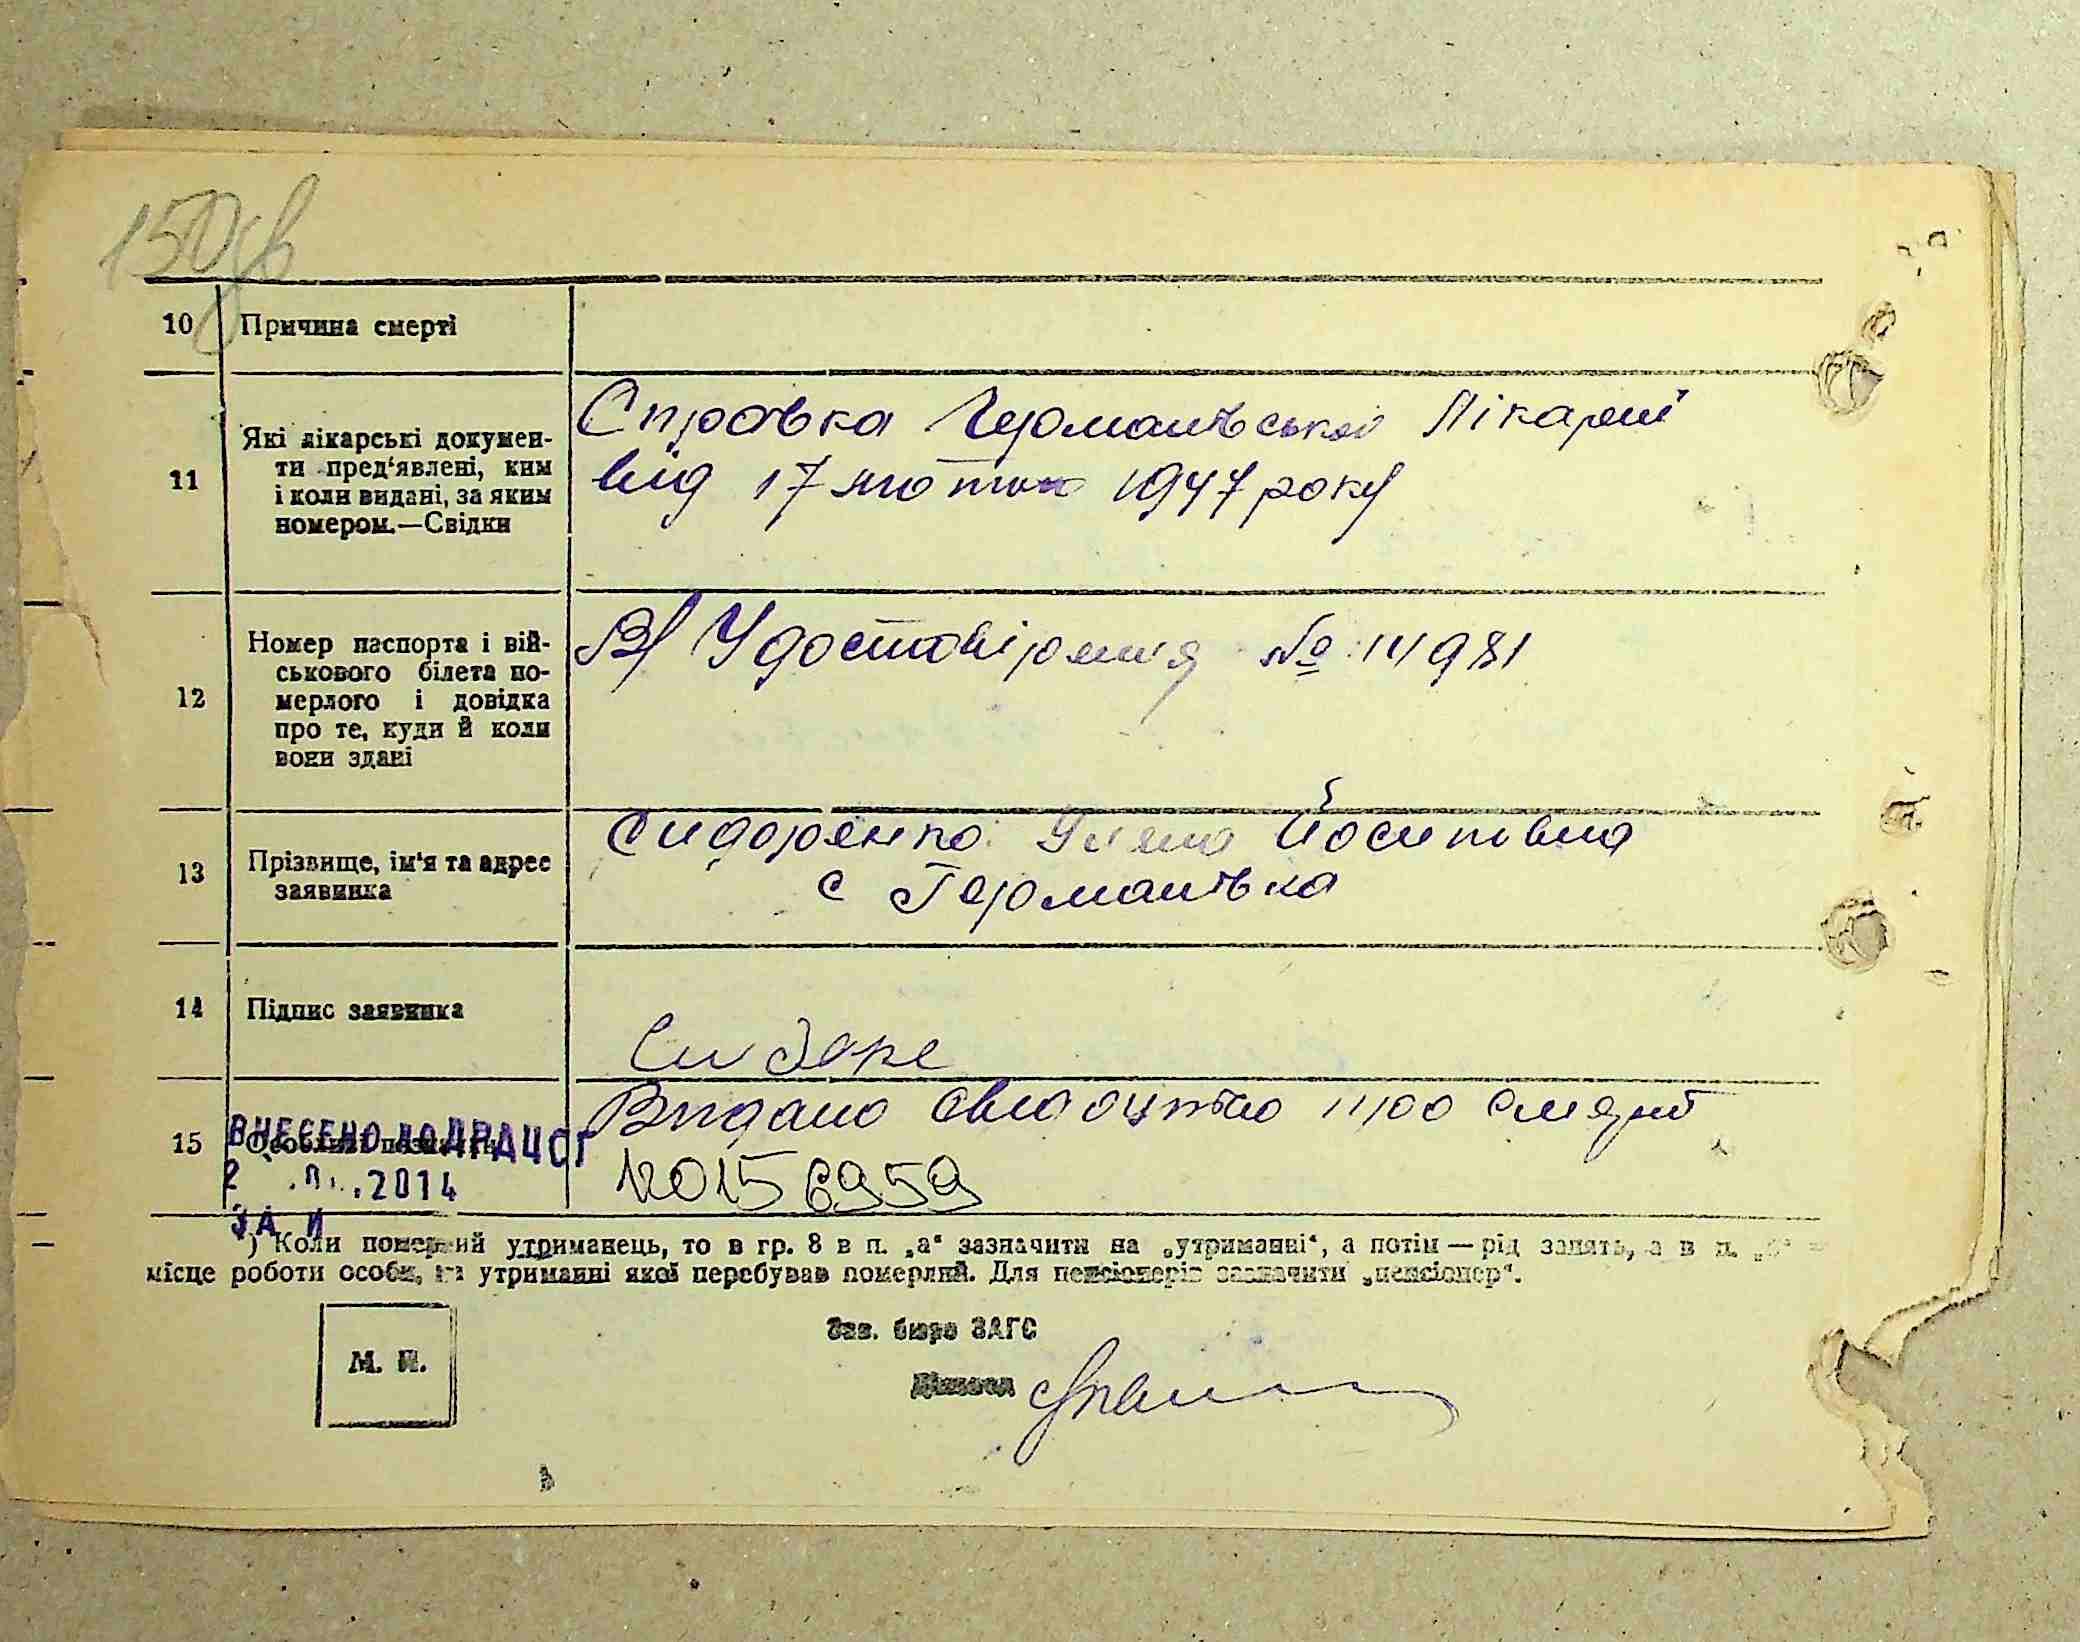 150
10 Причина смерті
11 Які лікарські докумен-
ти пред'явлені, ким
і коли видані, за яким
номером.—Свідки
Справка Германівської Лікарні
від 17 лютого 1947 року
12 Номер паспорта і вій-
ськового білета по-
мерлого і довідка
про те, куди й коли
вони здані
В/ Удостовірення № 14981
13 Прізвище, ім'я та адрес
заявника
Сидоренко Уляна Йосипівна
с Германівка
14 Підпис заявника
Сидоре
15
Видано свідоцтво про смерть
ВНЕСЕНО ДО ДРАЦСГ
2 2014
ЗА И
) Коли померлий утриманець, то в гр. 8 в п. „а“ зазначити на „утриманні“, а потім — рід занять, а в п.
місце роботи особи, на утриманні якої перебував померлий. Для пенсіонерів зазначити „пенсіонер“.
Зав. бюро ЗАГС
М. П.
Діловод